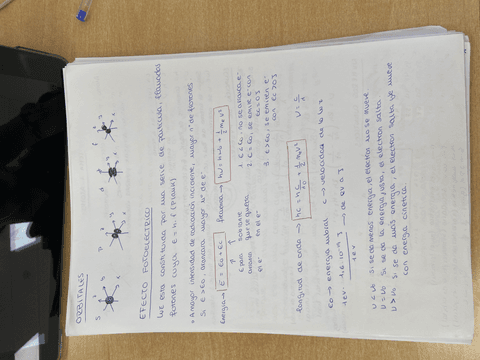 ORBITALES
S P d f
EFECTO FOTOELECTRICO
Luz esta constituida por una serie de particulas, llamadas
fotones cuya E = h · f (Plank)
+ A mayor intensidad de radiacion incidente, mayor nº de fotones
Si E > E₀, arrancara mayor nº de e⁻
Energia → E = E₀ + Ec
hν = h·ν₀ + ½ mₑ v²
E para arrancar el e⁻
sobrante que se queda en el e⁻
1. E < E₀, no se arranca e⁻
2. E = E₀, se emite e⁻ con Ec = 0 J
3. E > E₀, se emiten e⁻ con Ec > 0 J
longitud de onda → hc = h c + ½ mₑ v² ν = c/λ
E₀ → energia umbral c → velocidad de la luz
1 eV = 1,6·10⁻¹⁹ J → de eV a J
1 eV
ν < ν₀ si se da menos energia, el electron no se mueve
ν = ν₀ si se da la energia justa, el electron salta
ν > ν₀ si se da mas energia, el electron salta y se mueve
con energia cinetica